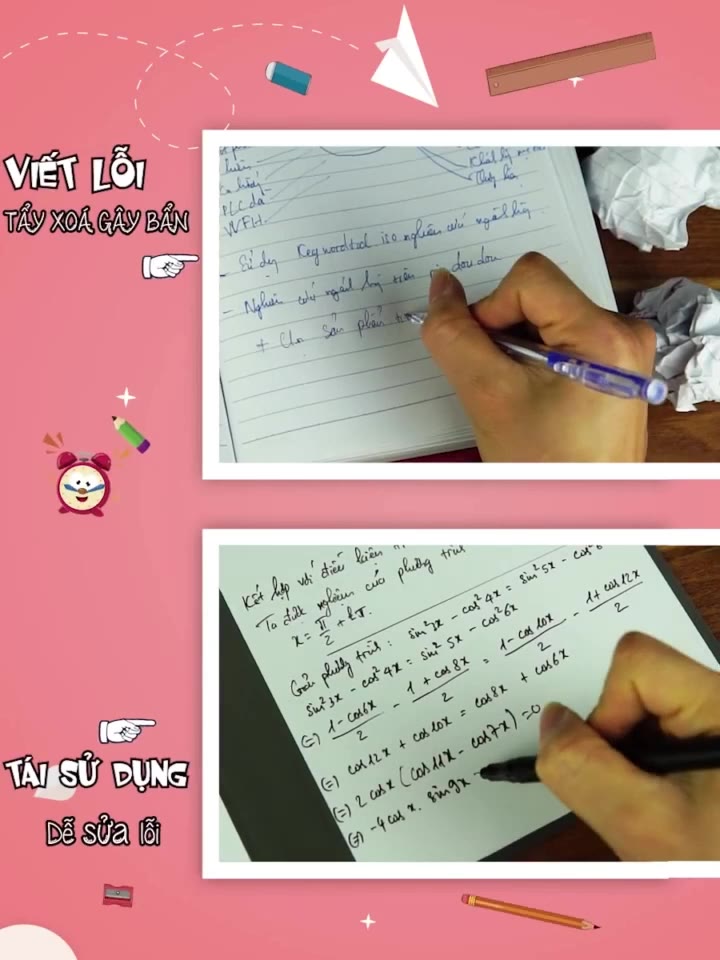 VIẾT LỖI
TẨY XOÁ GÂY BẨN
PLC
WFH
- Sử dụng Keywordtool iso nghiên cứu ngách
- Nghiên cứu ngách trên
+ Cho sản phẩm
Kết hợp với điều kiện
Ta được nghiệm của phương trình
x = π/2 + kπ.
Giải phương trình: sin²3x - cos²4x = sin²5x - cos²6
sin²3x - cos²4x = sin²5x - cos²6x
(=) 1-cos6x/2 - 1+cos8x/2 = 1-cos10x/2 - 1+cos12x/2
(=) cos12x + cos10x = cos8x + cos6x
(=) 2cosx(cos11x - cos7x) = 0
(=) -4cosx. sin9x
TÁI SỬ DỤNG
Dễ sửa lỗi